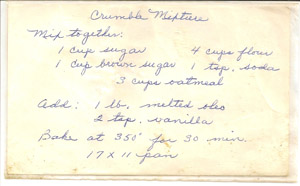 Crumble Mixture
Mix together:
1 cup sugar 4 cups flour
1 cup brown sugar 1 tsp. soda
3 cups oatmeal
Add: 1 lb. melted oleo
2 tsp. vanilla
Bake at 350° for 30 min.
17 x 11 pan